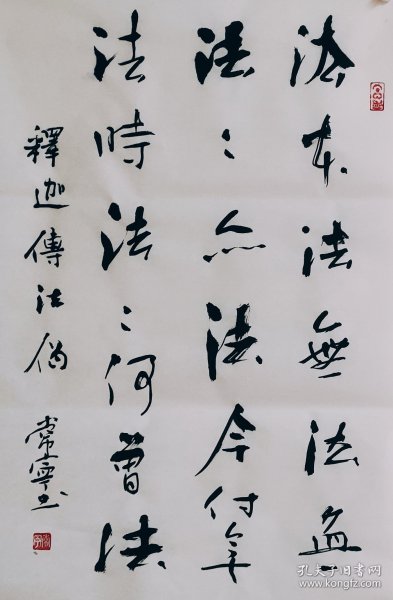 法本法無法無
法〻亦法今付無
法時法〻何曾法
釋迦傳法偈 常寧书
孔夫子旧书网
www.kongfz.com